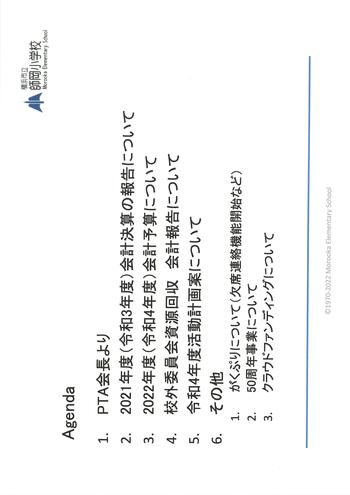 横浜市立
師岡小学校
Morooka Elementary School
Agenda
1. PTA会長より
2. 2021年度(令和3年度)会計決算の報告について
3. 2022年度(令和4年度)会計予算について
4. 校外委員会資源回収 会計報告について
5. 令和4年度活動計画案について
6. その他
1. がくぷりについて(欠席連絡機能開始など)
2. 50周年事業について
3. クラウドファンディングについて
©1970-2022 Morooka Elementary School